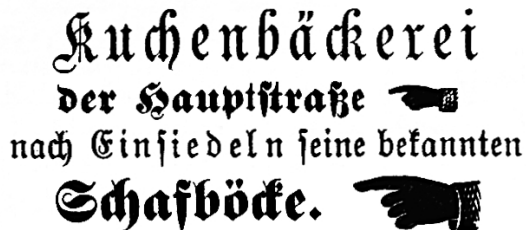 Kuchenbäckerei
der Hauptstraße
nach Einsiedeln seine bekannten
Schafböcke.